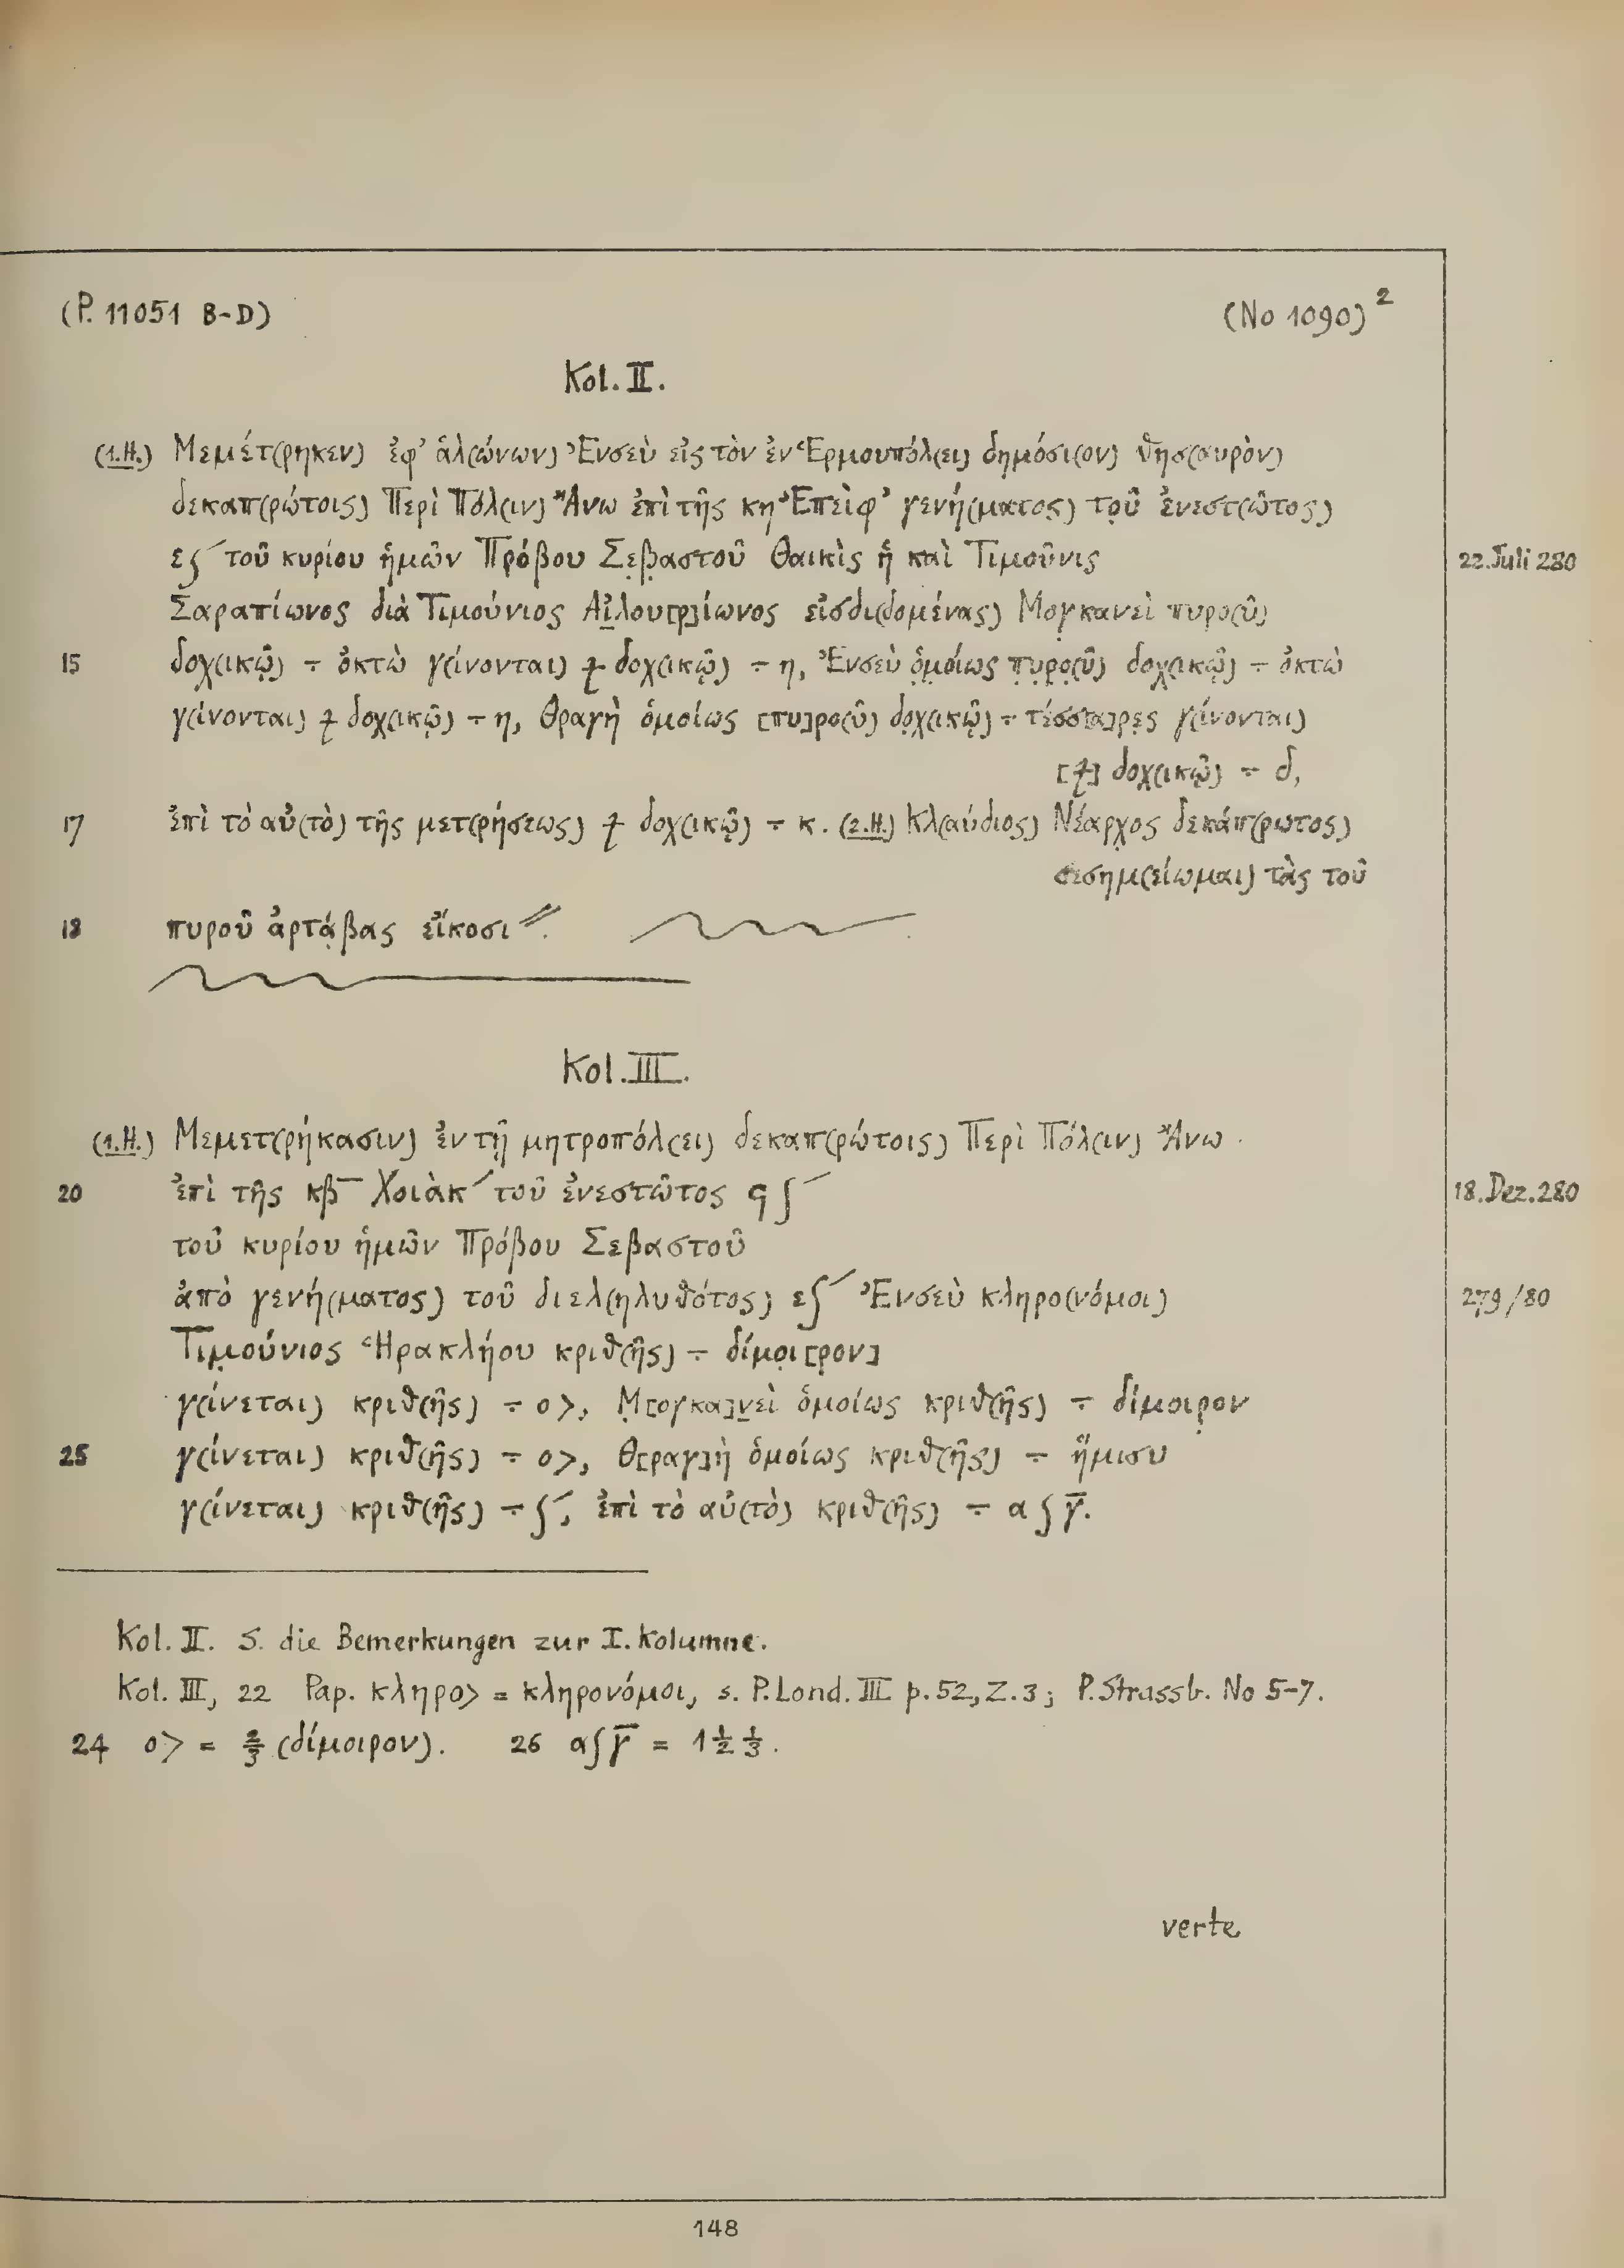 (P. 11051 B-D) (No 1090)²
Kol. II.
(1.H.) Μεμέτ(ρηκεν) ἐφ' ἁλ(ώνων) Ἐνσεὺ εἰς τὸν ἐν Ἑρμουπόλ(ει) δημόσι(ον) θησ(αυρὸν)
δεκαπ(ρώτοις) Περὶ Πόλ(ιν) Ἄνω ἐπὶ τῆς κη Ἐπεὶφ' γενή(ματος) τοῦ ἐνεστ(ῶτος)
ε𐅹´ τοῦ κυρίου ἡμῶν Πρόβου Σεβ̣αστοῦ Θαικὶς ἡ καὶ Τιμοῦνις
22. Juli 280
Σαραπίωνος διὰ Τιμούνιος Αἰλου[ρ]ίωνος εἰσδι(δομένας) Μογκανεὶ πυρο(ῦ)
15 δοχ(ικῷ) ÷ ὀκτὼ γ(ίνονται) ⳨ δοχ(ικῷ) ÷ η, Ἐνσεὺ ὁμοίως πυρο(ῦ) δοχ(ικῷ) ÷ ὀκτὼ
γ(ίνονται) ⳨ δοχ(ικῷ) ÷ η, Θραγὴ ὁμοίως [πυ]ρο(ῦ) δοχ(ικῷ) ÷ τέσσ[α]ρες γ(ίνονται)
[⳨] δοχ(ικῷ) ÷ δ,
17 ἐπὶ τὸ αὐ(τὸ) τῆς μετ(ρήσεως) ⳨ δοχ(ικῷ) ÷ κ. (2.H.) Κλ(αύδιος) Νέαρχος δεκάπ(ρωτος)
σεσημ(είωμαι) τὰς τοῦ
18 πυροῦ ἀρτάβας εἴκοσι //.
Kol. III.
(1.H.) Μεμετ(ρήκασιν) ἐν τῇ μητροπόλ(ει) δεκαπ(ρώτοις) Περὶ Πόλ(ιν) Ἄνω
20 ἐπὶ τῆς κβ‾ Χοιὰκ´ τοῦ ἐνεστῶτος ϛ∫´
18. Dez. 280
τοῦ κυρίου ἡμῶν Πρόβου Σεβαστοῦ
ἀπὸ γενή(ματος) τοῦ διελ(ηλυθότος) ε∫´ Ἐνσεὺ κληρο(νόμοι)
279/80
Τιμούνιος Ἡρακλήου κριθ(ῆς) ÷ δίμοι[ρον]
γ(ίνεται) κριθ(ῆς) ÷ ο>, Μ[ογκα]νεὶ ὁμοίως κριθ(ῆς) ÷ δίμοιρον
25 γ(ίνεται) κριθ(ῆς) ÷ ο>, Θ[ραγ]ὴ ὁμοίως κριθ(ῆς) ÷ ἥμισυ
γ(ίνεται) κριθ(ῆς) ÷ ∫´, ἐπὶ τὸ αὐ(τὸ) κριθ(ῆς) ÷ α ∫ γ̅.
Kol. II. S. die Bemerkungen zur I. Kolumne.
Kol. III, 22 Pap. κληρο> = κληρονόμοι, s. P. Lond. III p. 52, Z. 3; P. Strassb. No 5-7.
24 ο> = ⅔ (δίμοιρον). 26 α∫γ̅ = 1 ½ ⅓.
verte
148